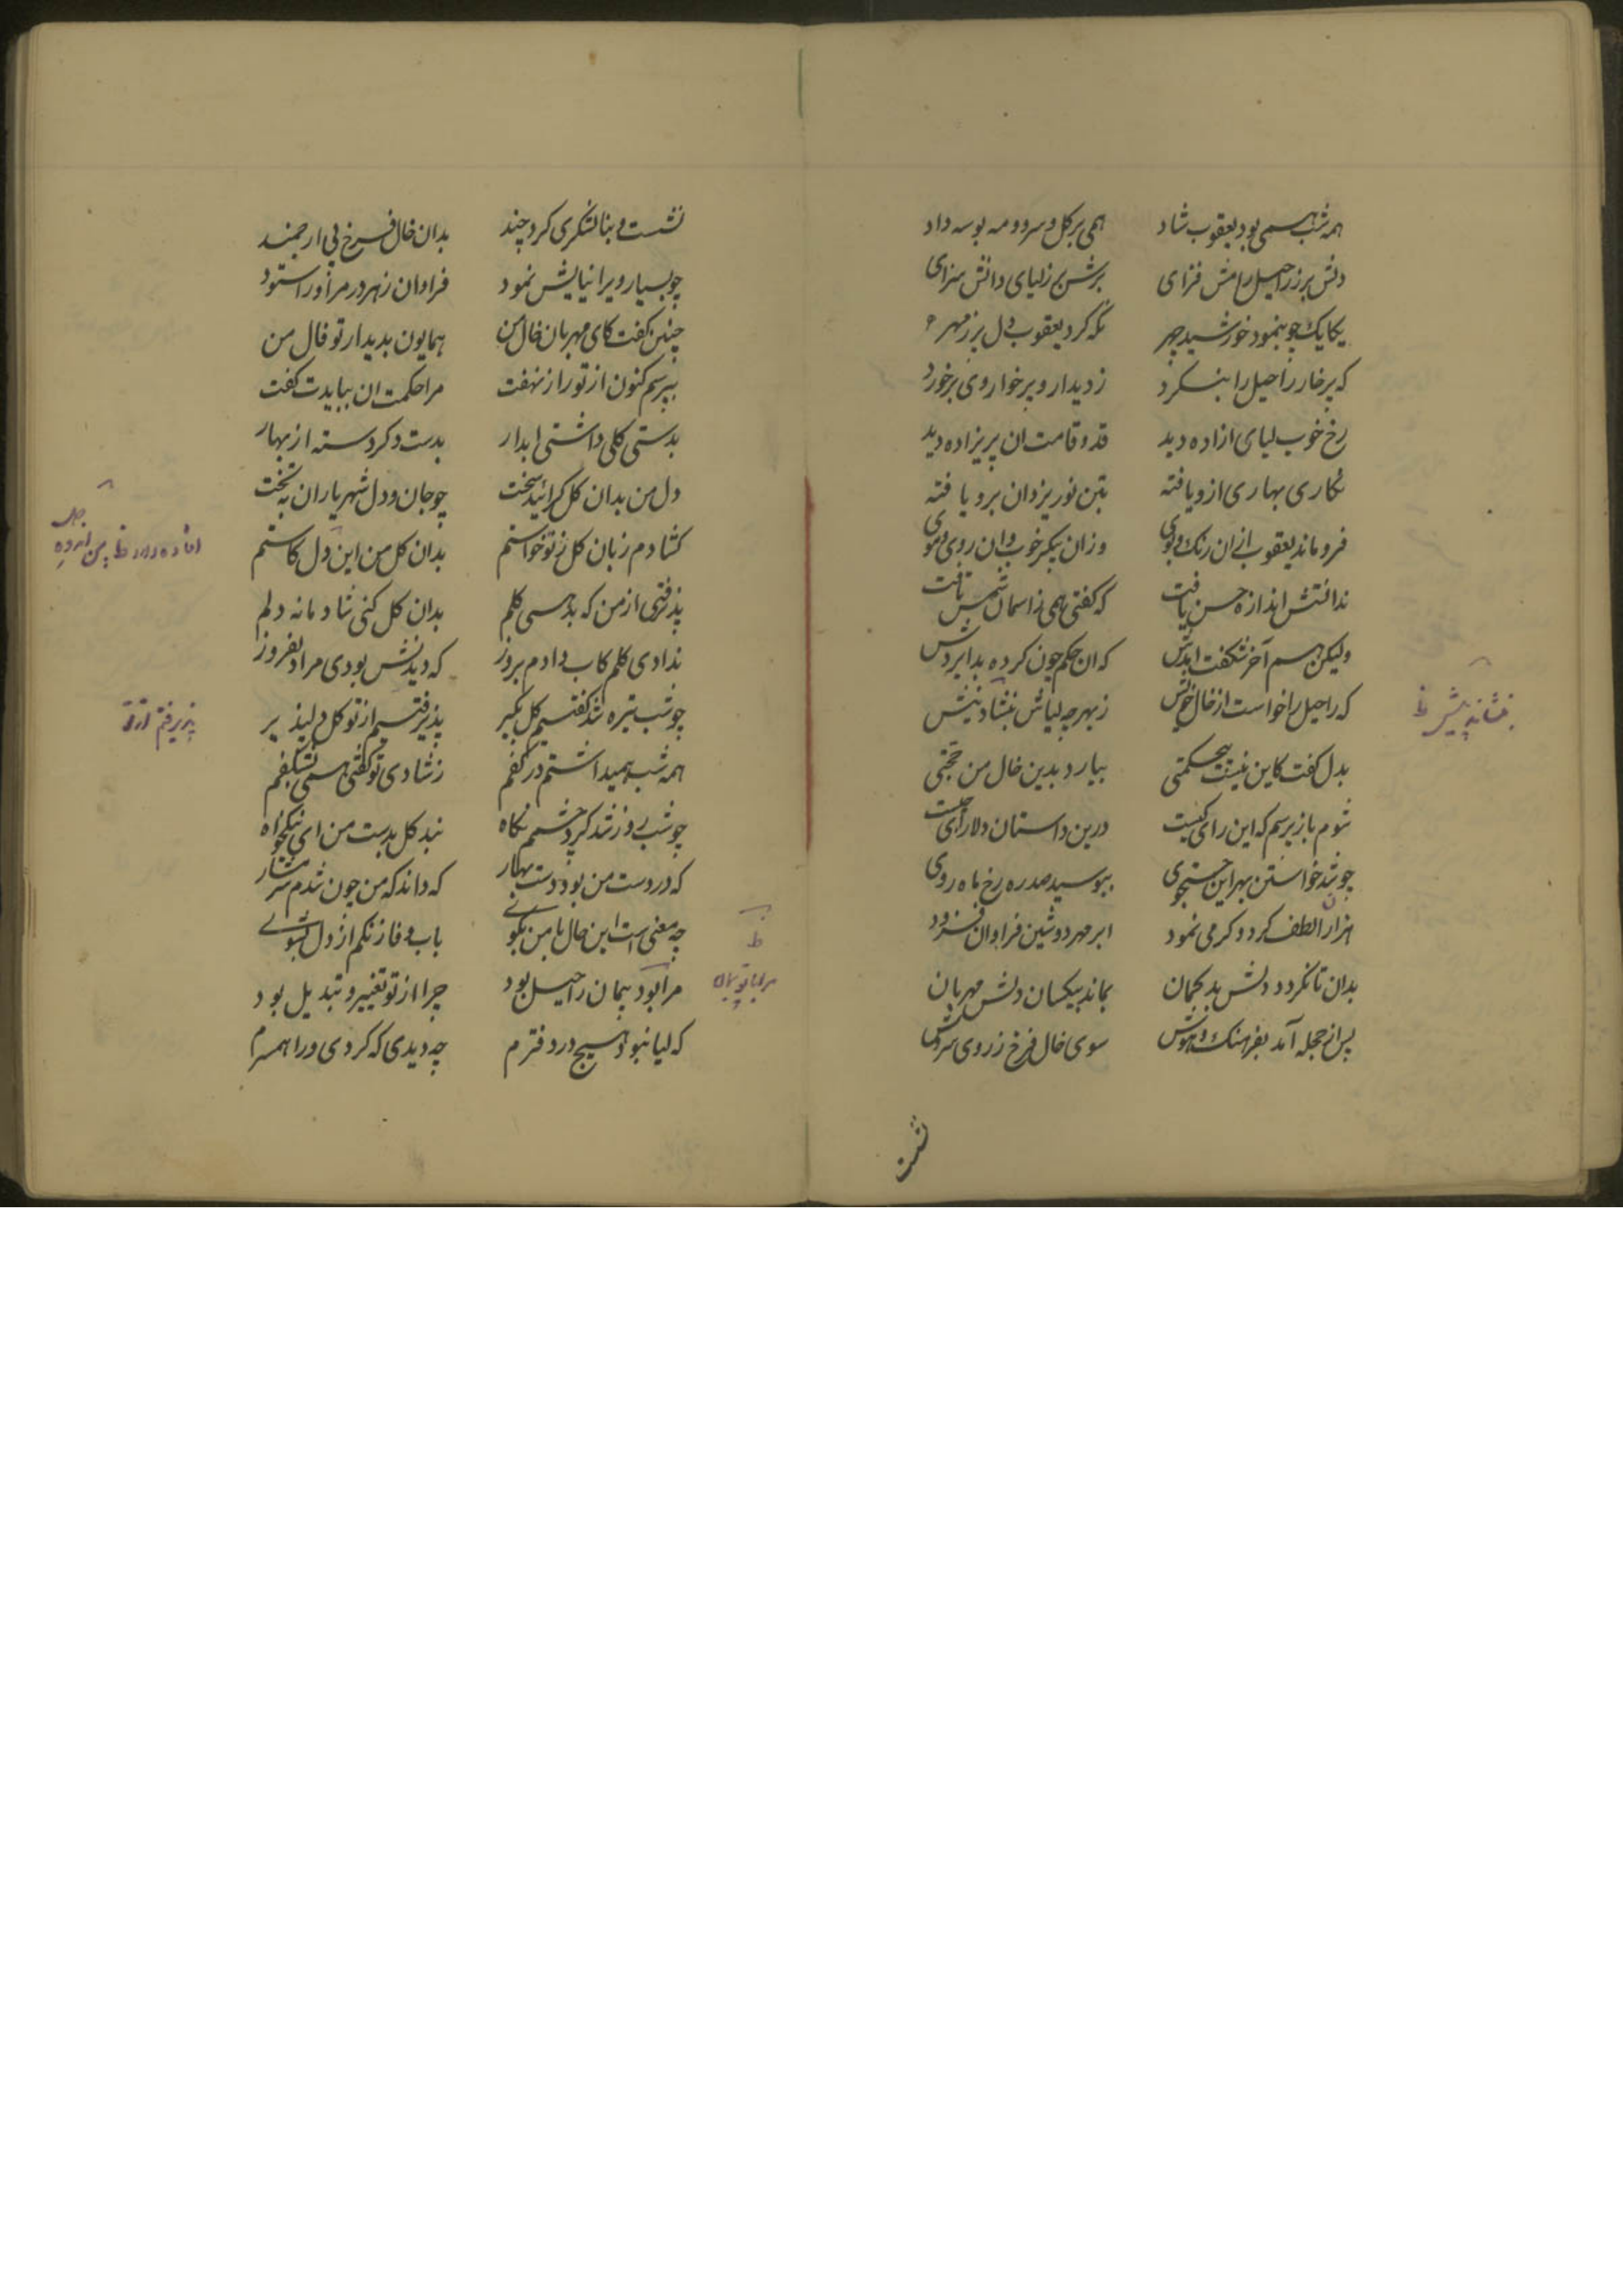 همه شب همی بود یعقوب شاد همی بر گل و سرو و مه بوسه داد
دلش پر ز راحیل رامش فزای برش بر ز لیای دانش سزای
یکایک چو بنمود خورشید چهر نگه کرد یعقوب دل پر ز مهر
که پرخار راحیل را بنگرد ز دیدار او پرخوار وی برخورد
رخ خوب لیای ازاده دید قد و قامت ان پریزاده دید
نگاری بهاری ازو یافته بتن نور یزدان برو یافته
فرو ماند یعقوب ازان رنک و بوی وزان پیکر خوب وان روی و موی
ندانتش اندازه حسن یافت که گفتی همی ز اسمان شمس تافت
ولیکن هم آخر شکفت آمدش که ان حکم چون کرده بد ایزدش
که راحیل را خواست از خال خویش ز بهر چه لیاش بنشاند پیش
بدل گفت کاین نیست بیحکمتی بیارد بدین خال من حجتی
شوم باز پرسم که این رای کیست درین داستان دلارای چیست
چو شد خواستن بهر این جستجوی ببوسید صد ره رخ ماه روی
هزاران لطف کرد و کرمی نمود ابر مهر دوشین فراوان فزود
بدان تا نکردد دلش بد کمان بماند بیکسان دلش مهربان
پس از حجله آمد بفرهنک و هوش سوی خال فرخ ز روی سروش
بنشاند پیش ظ
نشست
نشست و بنا لشکری کرد چند بدان خال فرخ پی ارجمند
چو بسیار ویرا نیایش نمود فراوان ز هر در مر او را ستود
چنین گفت کای مهربان خال من همایون بدیدار تو فال من
بپرسم کنون از تو راز نهفت مرا حکمت ان ببایدت گفت
بدستی کلی داشتی ابدار بدست دکر دسته از بهار
دل من بدان کل کرائید سخت چو جان و دل شهریاران به تخت
کشادم زبان کل ز تو خواستم بدان کل من این دل کاستم
پذرفتی از من که بدهی کلم بدان کل کنی شادمانه دلم
ندادی کلم کاب دادم بروز که دیدنش بودی مرا دلفروز
چو شب تیره شد گفتیم کل بکیر پذیرفتیم از تو کل دلپذیر
همه شب همیداشتم در کفم ز شادی تو گفتی همی بشکفم
چو شب روز شد کرد چشمم نگاه نبد کل بدست من ای نیکخواه
که در دست من بود دست بهار که داند که من چون شدم شرمسار
چه معنی است این حال با من بکوی باب وفا زنکم از دل بشوی
مرا بود پیمان راحیل بود چرا از تو تغییر و تبدیل بود
که لیا نبود هیچ در دفترم چه دیدی که کردی ورا همسرم
پذیرفتم از تو